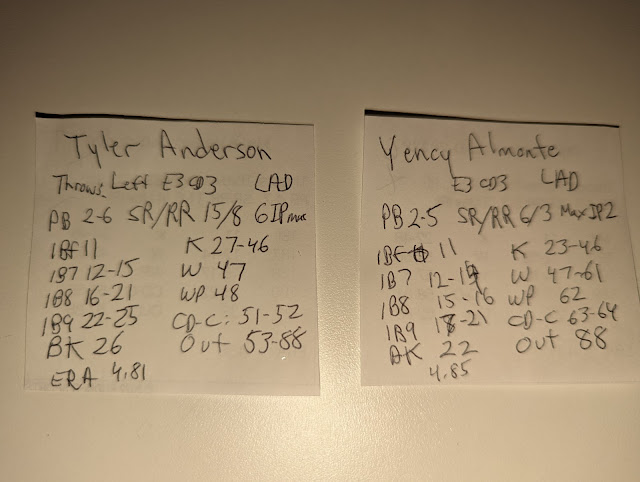 Tyler Anderson
Throws Left E3 CD3 LAD
PB 2-6 SR/RR 15/8 6IP max
1Bf 11 K 27-46
1B7 12-15 W 47
1B8 16-21 WP 48
1B9 22-25 CD-C: 51-52
BK 26 Out 53-88
ERA 4.81
Yency Almonte
E3 CD3 LAD
PB 2-5 SR/RR 6/3 Max IP2
1BF 11 K 23-46
1B7 12-14 W 47-61
1B8 15-16 WP 62
1B9 18-21 CD-C 63-64
BK 22 Out 88
4.85